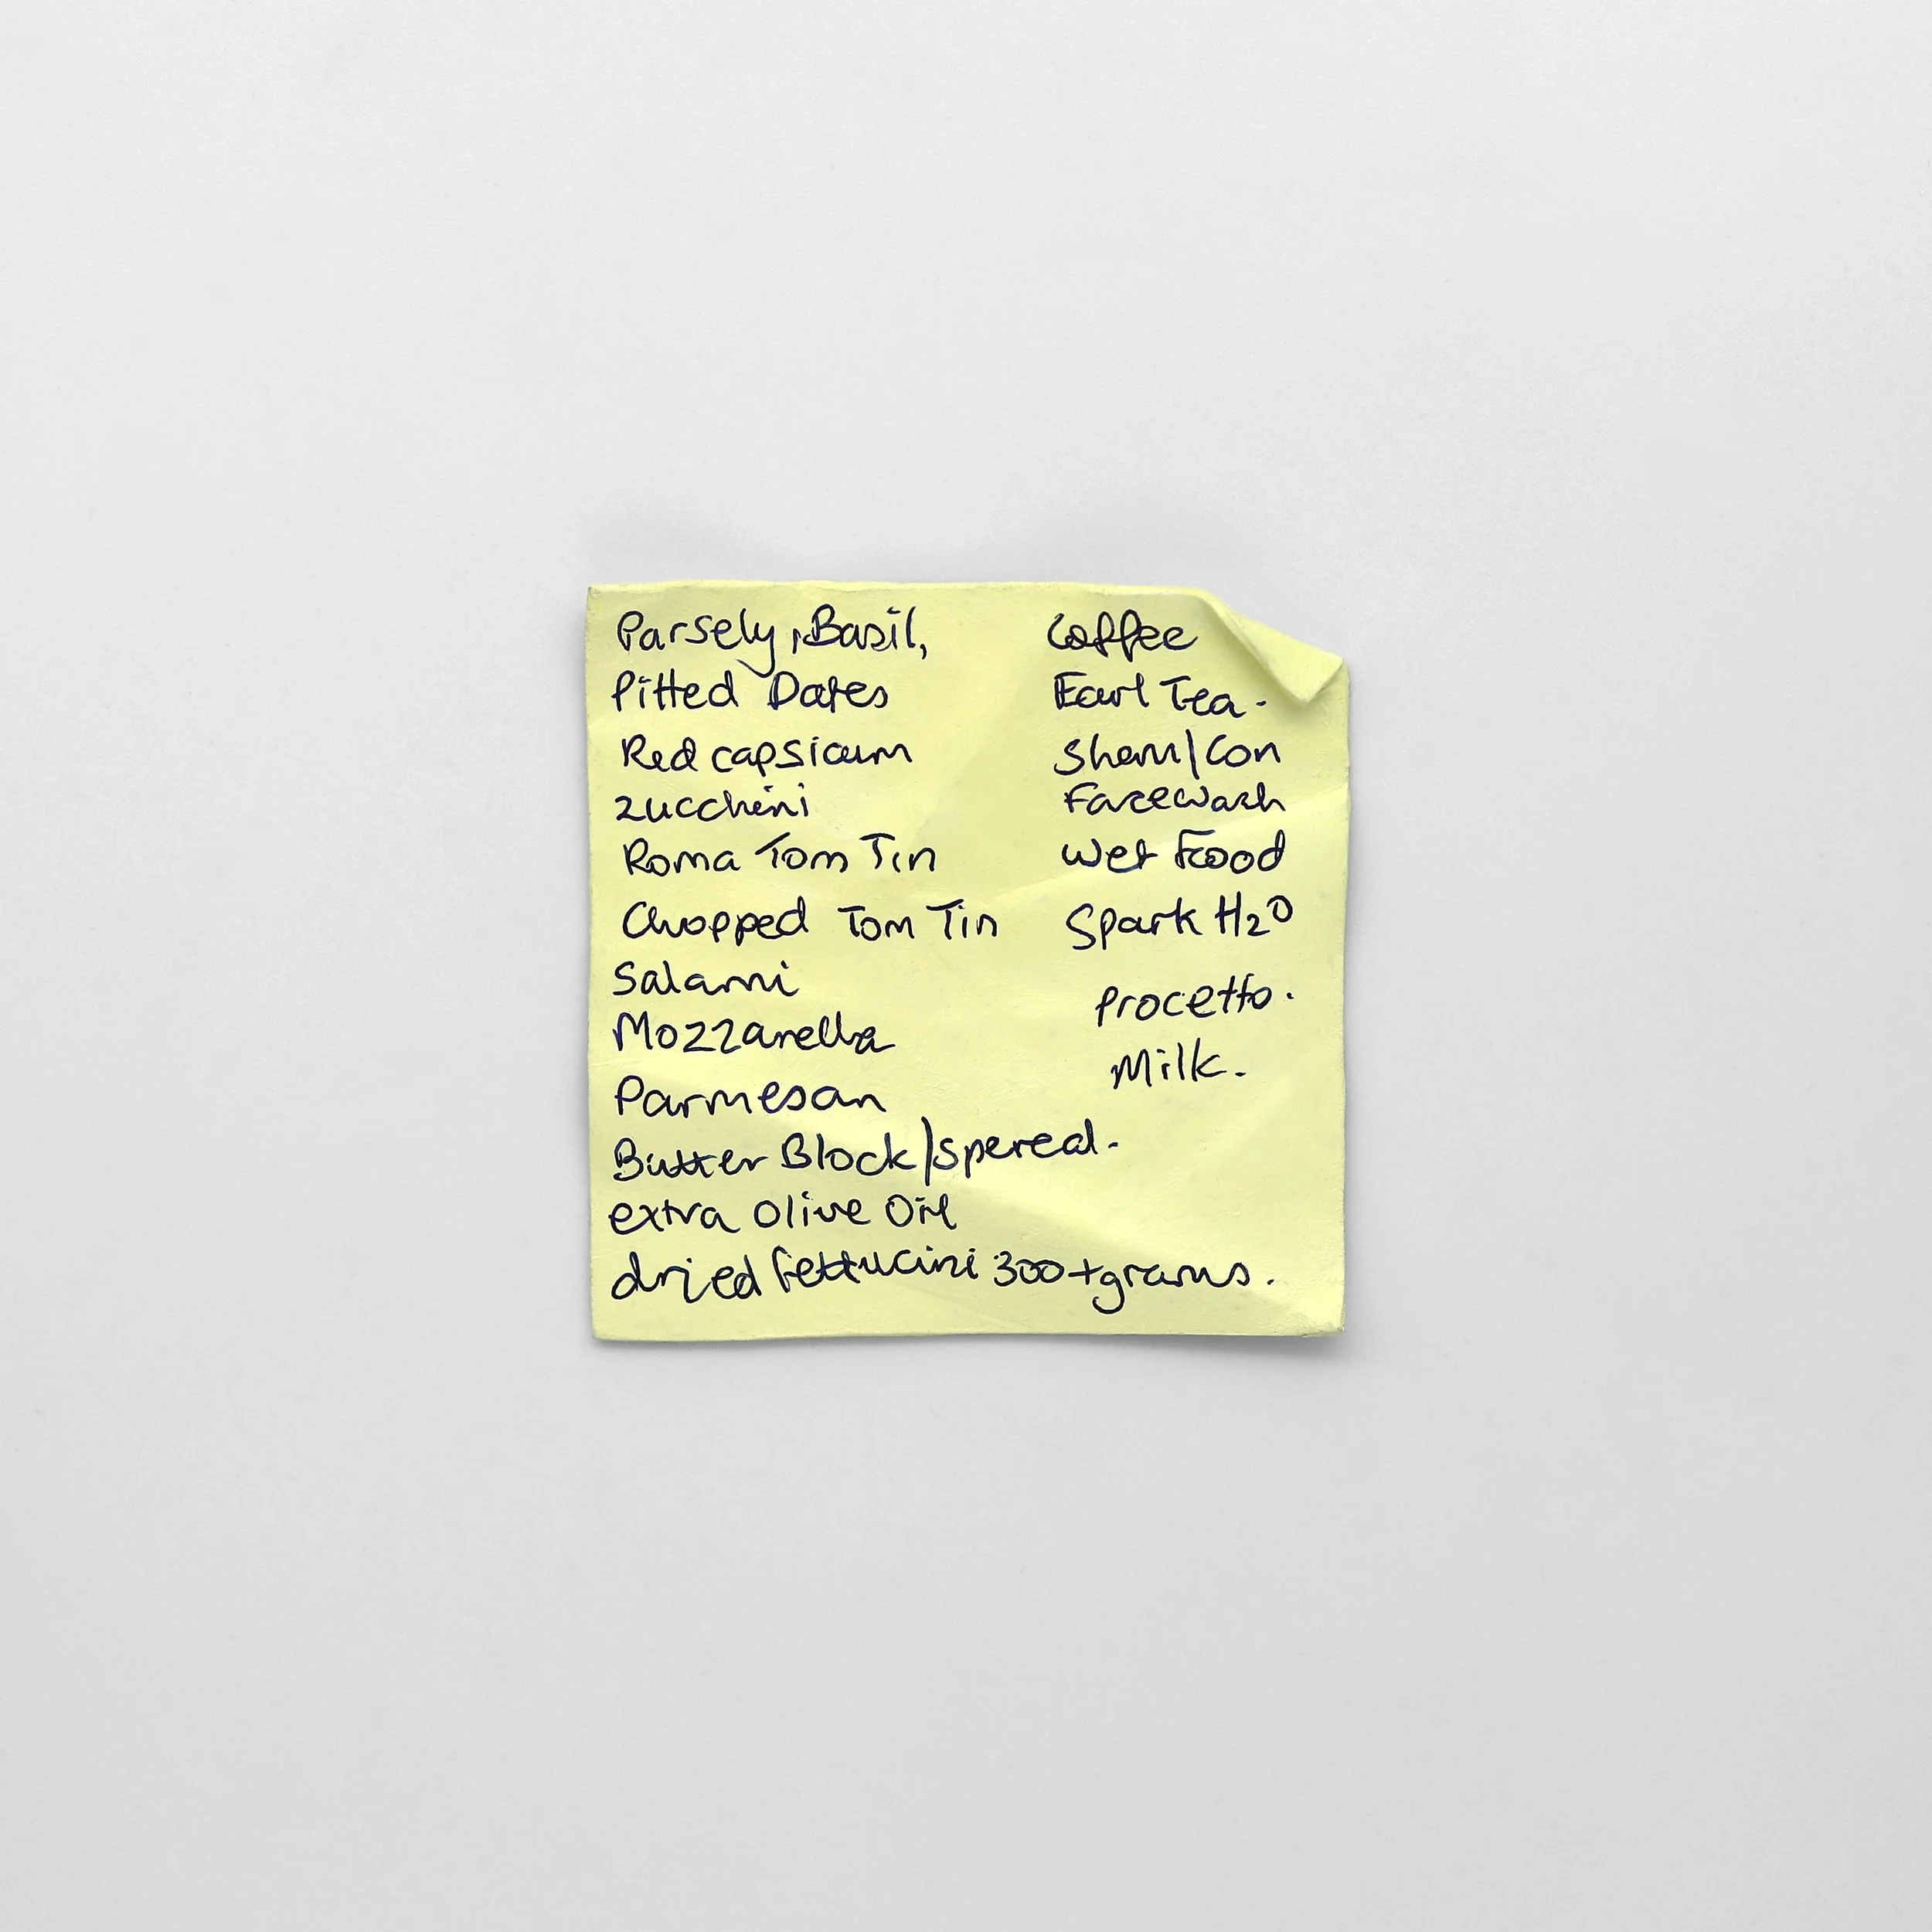 Parsely, Basil,
Pitted Dates
Red capsicum
zucchini
Roma Tom Tin
Chopped Tom Tin
Salami
Mozzarella
Parmesan
Butter Block/spereal.
extra olive Oil
dried fettucini 300+grams.
Coffee
Earl Tea.
Sham/Con
Facewash
Wet Food
Spark H2O
procetto.
Milk.